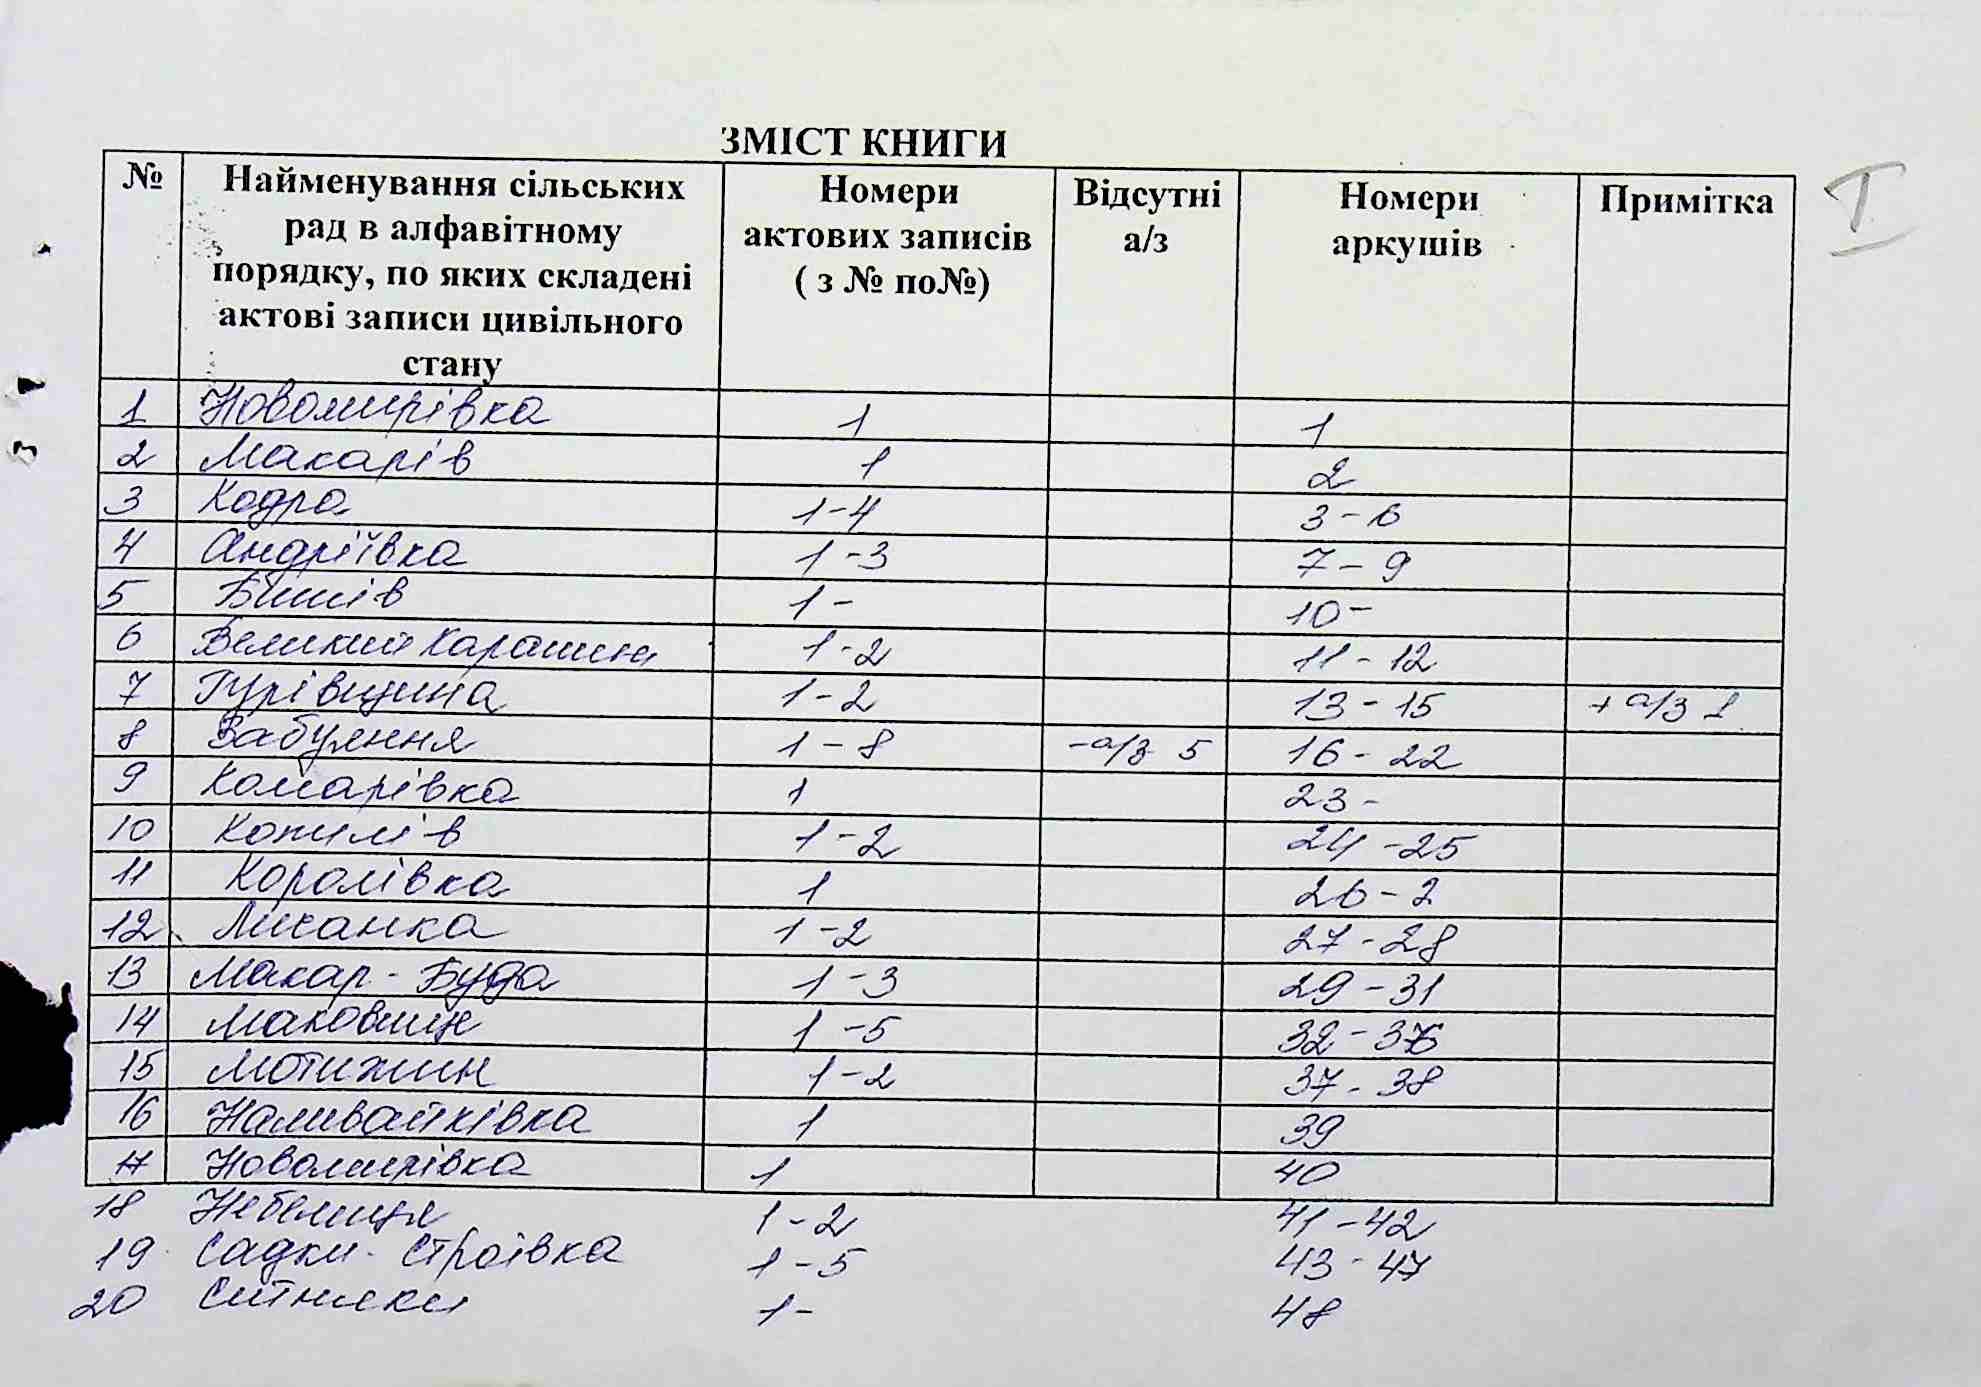 ЗМІСТ КНИГИ
I
№ Найменування сільських рад в алфавітному порядку, по яких складені актові записи цивільного стану Номери актових записів ( з № по№) Відсутні а/з Номери аркушів Примітка
1 Новомирівка 1 1
2 Макарів 1 2
3 Кодра 1-4 3-6
4 Андріївка 1-3 7-9
5 Бишів 1- 10-
6 Великий Карашин 1-2 11-12
7 Гурівщина 1-2 13-15 + а/з 1
8 Забуяння 1-8 -а/з 5 16-22
9 Комарівка 1 23-
10 Копилів 1-2 24-25
11 Королівка 1 26-2
12 Лишанка 1-2 27-28
13 Макар-Буда 1-3 29-31
14 Маковище 1-5 32-36
15 Мотижин 1-2 37-38
16 Наливайківка 1 39
17 Новомирівка 1 40
18 Небелиця 1-2 41-42
19 Садки-Строївка 1-5 43-47
20 Ситняки 1- 48